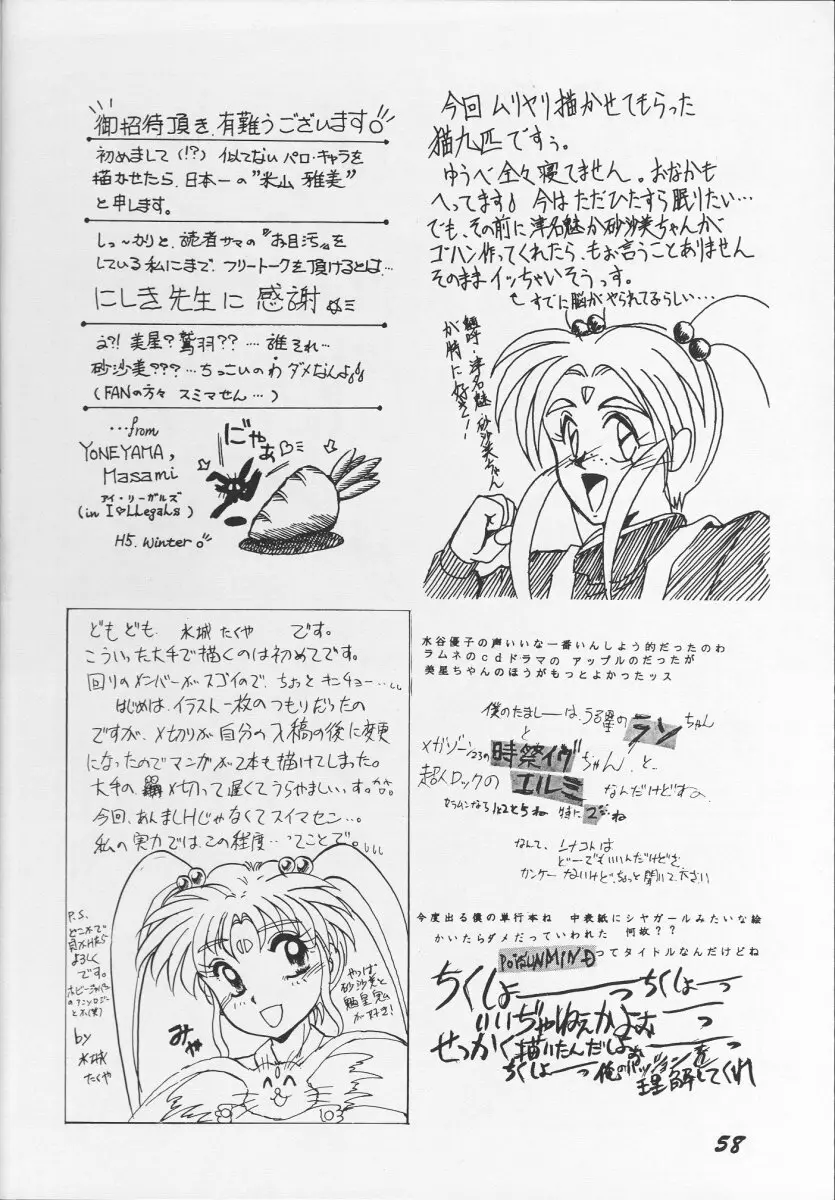 御招待頂き、有難うございます。
初めまして(!?) 似てないパロ・キャラを
描かせたら、日本一の"米山 雅美"
と申します。
しっ〜かりと、読者サマの『お目汚』を
している私にまで、フリートークを頂けるとは…
にしき先生に 感謝
え?! 美星? 鷲羽?? …. 誰それ…
砂沙美???… ちっこいのわ ダメなんよ
(FANの方々 スミマせん…)
…from
YONEYAMA,
Masami
アイ・リーガルズ
(in I♡LLegaLs)
H5. Winter。
にゃあ
今回 ムリヤリ描かせてもらった
猫九匹ですぅ。
ゆうべ全々寝てません。おなかも
へってます 今はただひたすら眠りたい…
でも、その前に津名魅か砂沙美ちゃんが
ゴハン作ってくれたら、もお言うことありません
そのままイッちゃいそうっす。
すでに脳がやられてるらしい…
魎呼・津名魅・砂沙美ちゃん
が特に好き!!
どもども、水城 たくや です。
こういった大手で描くのは初めてです。
回りのメンバーがスゴイので、ちょおとキンチョー…
はじめは、イラスト一枚のつもりだったの
ですが、〆切りが自分の入稿の後に変更
になったのでマンガが2本も描けてしまった。
大手の 〆切って遅くてうらやましいっす。
今回、あんましHじゃなくてスイマセン…。
私の実力では、この程度…ってことで。
P.S.
よろしく
です。
by
水城
たくや
やっぱ
砂沙美と
魎皇鬼
が好き!
みゃ
水谷優子の声いいな一番いんしよう的だったのわ
ラムネのcdドラマの アップルのだったが
美星ちゃんのほうがもっとよかったッス
僕のたましーは、うる星のランちゃん
と
メガゾーン23の時祭イヴちゃん、と
超人ロックの エルミ なんだけどすよ
1と2と5ね 特に2ね
なんて、
どーでもいいんだけどさ
カンケーないけど、ちょっと聞いて下さい
今度出る僕の単行本ね 中表紙にシヤガールみたいな絵
かいたらダメだっていわれた 何故??
POISUNMINDってタイトルなんだけどね
ちくしょーーっちくしょーっ
いいぢゃねぇかよぉーっ
せっかく描いたんだしよぉー
ちくしょーっ 俺のパッションを
理解してくれ
58